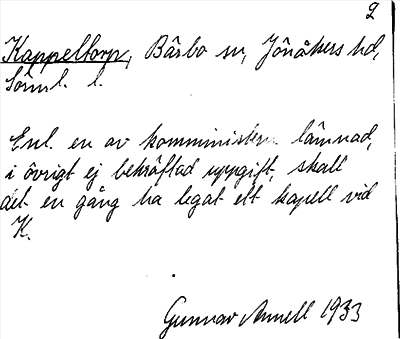 2
Kappeltorp, Bärbo sn, Jönåkers hd,
Sörml. l.
Enl. en av komministern lämnad,
i övrigt ej bekräftad uppgift, skall
det en gång ha legat ett kapell vid
K.
Gunnar Annell 1933